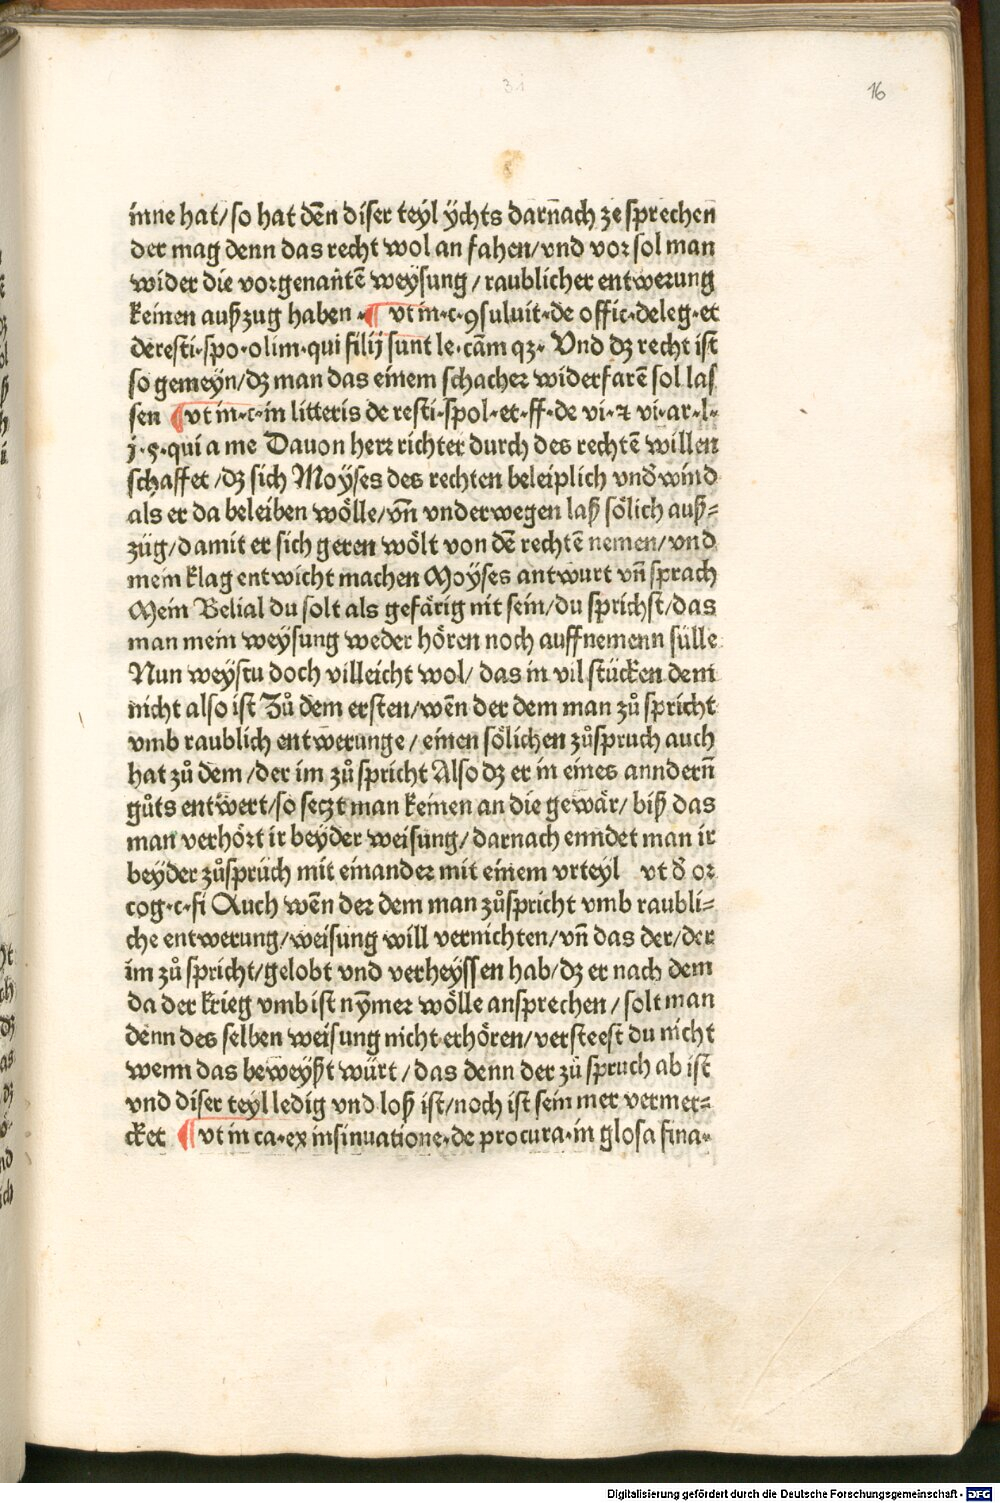 31
16
inne hat/so hat dēn diser teyl ÿchts darn̄ach ze sprechen
der mag denn das recht wol an fahen/vnd vor sol man
wider die vorgenan̄tē weÿsung/raublicher entwerung
keinen außzug haben ¶ vt in·c·ꝯsuluit·de offic·deleg·et
de resti·spo·olim·qui filij sunt le·cām qꝫ· Vnd dz recht ist
so gemeyn/dz man das einem schacher widerfarē sol las
sen ¶ vt in·c·in litteris de resti·spol·et·ff·de vi·⁊ vi·ar·l·
j·§·qui a me Dauon herr richter durch des rechtē willen
schaffet/dz sich Moÿses des rechten beleiplich vnd̄wind
als er da beleiben wölle/vn̄ vnderwegen laß sölich auß⸗
züg/damit er sich geren wölt von dē rechtē nemen/vnd
mein klag entwicht machen Moÿses antwurt vn̄ sprach
Mein Belial du solt als gefärig nit sein/du sprichst/das
man mein weÿsung weder hören noch auffnemenn sülle
Nun weÿstu doch villeicht wol/das in vil stücken dem
nicht also ist Zů dem ersten/wēn der dem man zů spricht
vmb raublich entwerunge/einen sölichen zůspruch auch
hat zů dem/der im zů spricht Also dz er in eines anndern̄
gůts entwert/so seczt man keinen an die gewär/biß das
man verhört ir beÿder weisung/darnach enndet man ir
beÿder zůsprüch mit einander mit einem vrteyl vt d̄ or
cog·c·fi Auch wēn der dem man zůspricht vmb raubli⸗
che entwerung/weisung will vernichten/vn̄ das der/der
im zů spricht/gelobt vnd verheÿssen hab/dz er nach dem
da der krieg vmb ist nȳmer wölle ansprechen/solt man
denn des selben weisung nicht erhören/versteest du nicht
wenn das beweÿßt würt/das denn der zů spruch ab ist
vnd diser teyl ledig vnd loß ist/noch ist sein mer vermer⸗
cket ¶ vt in ca·ex insinuatione·de procura·in glosa fina·
Digitalisierung gefördert durch die Deutsche Forschungsgemeinschaft - DFG